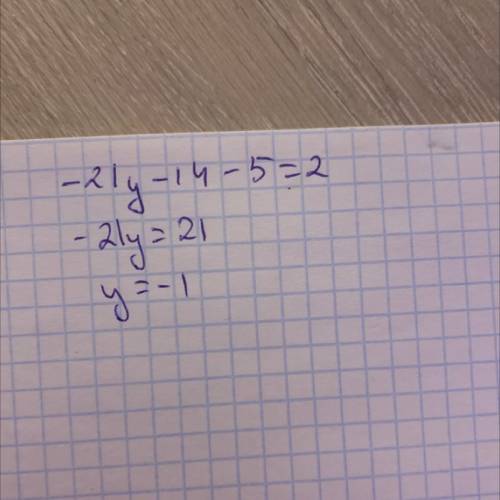 -21y-14-5=2
-21y=21
y=-1